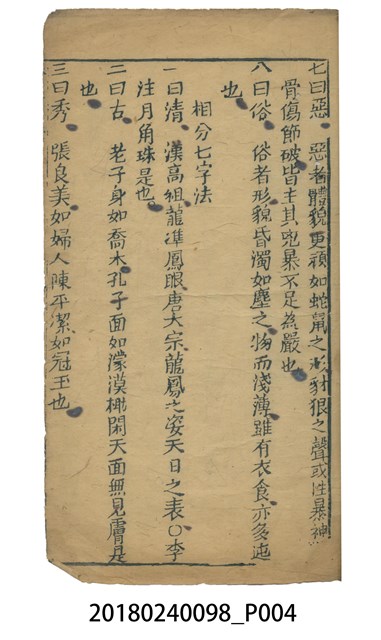 七曰惡 惡者體貌更頑如蛇鼠之形豺狼之聲或性暴神
骨傷節破皆主其兇暴不足為嚴也
八曰俗 俗者形貌昏濁如塵之物而淺薄雖有衣食亦多迍
也
相分七字法
一曰清 漢高祖龍準鳳眼唐太宗龍鳳之姿天日之表○李
注月角珠是也
二曰古 老子身如喬木孔子面如濛漠 閎夭面無見膚是
也
三曰秀 張良美如婦人陳平潔如冠玉也
20180240098_P004